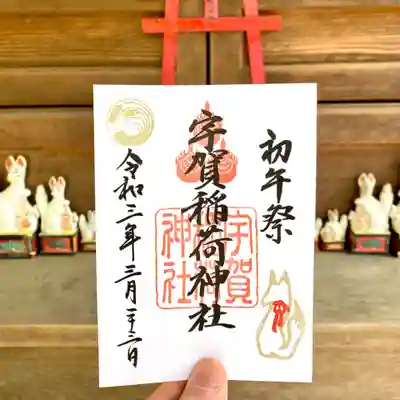 初午祭
宇賀稲荷神社
宇賀
神社
令和三年三月二十二日